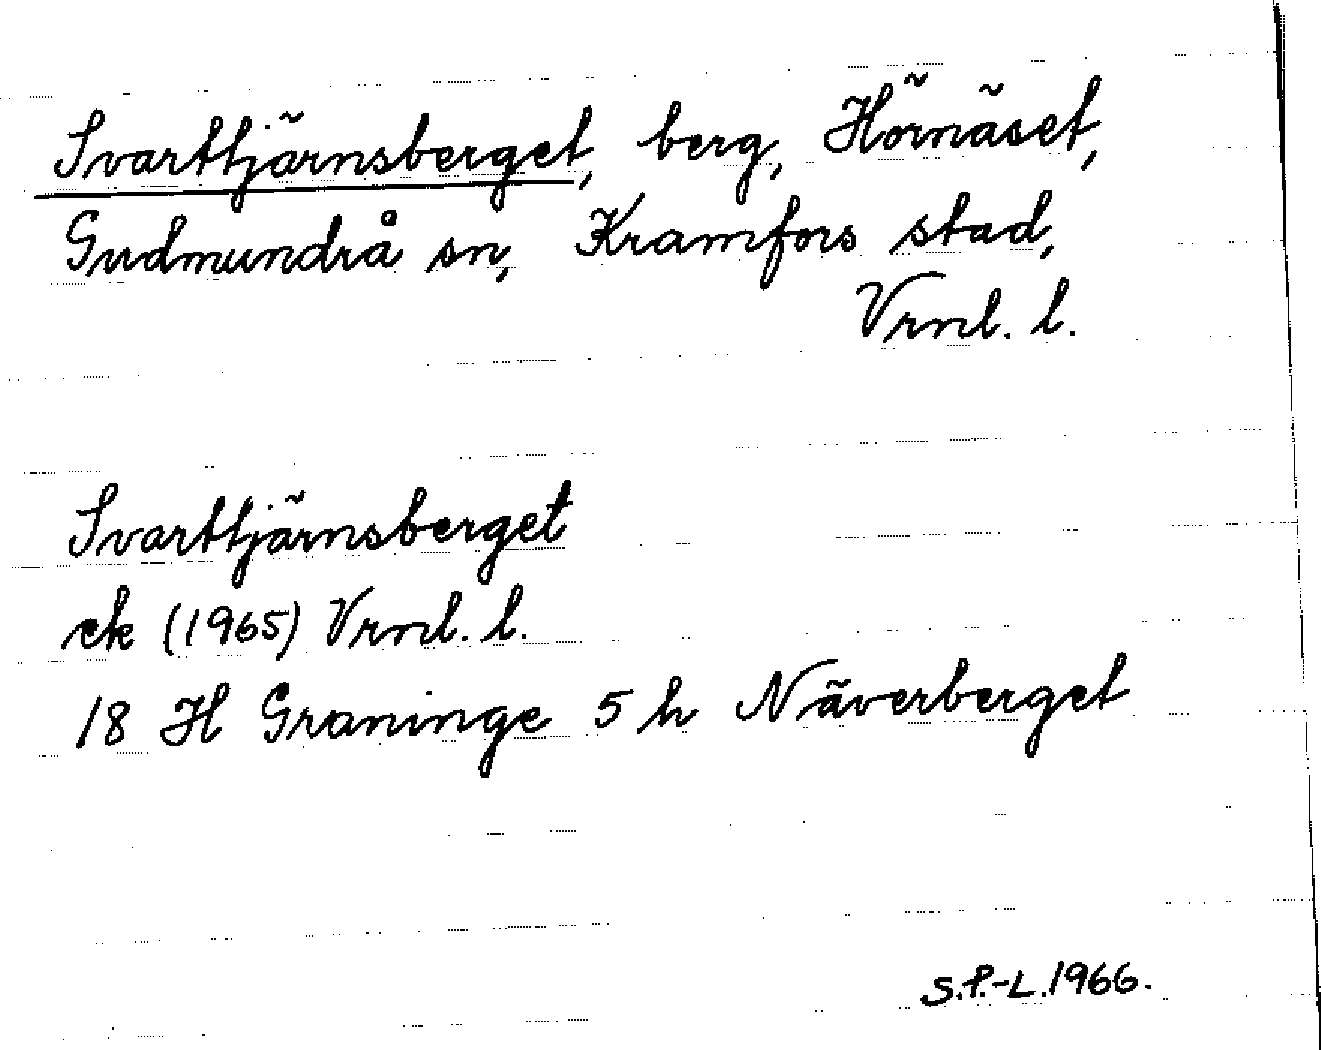 Svarttjärnsberget, berg, Hörnäset,
Gudmundrå sn, Kramfors stad,
Vrnl. l.
Svarttjärnsberget
ek (1965) Vrnl. l.
18 H Graninge 5 h Näverberget
S.P.-L. 1966.